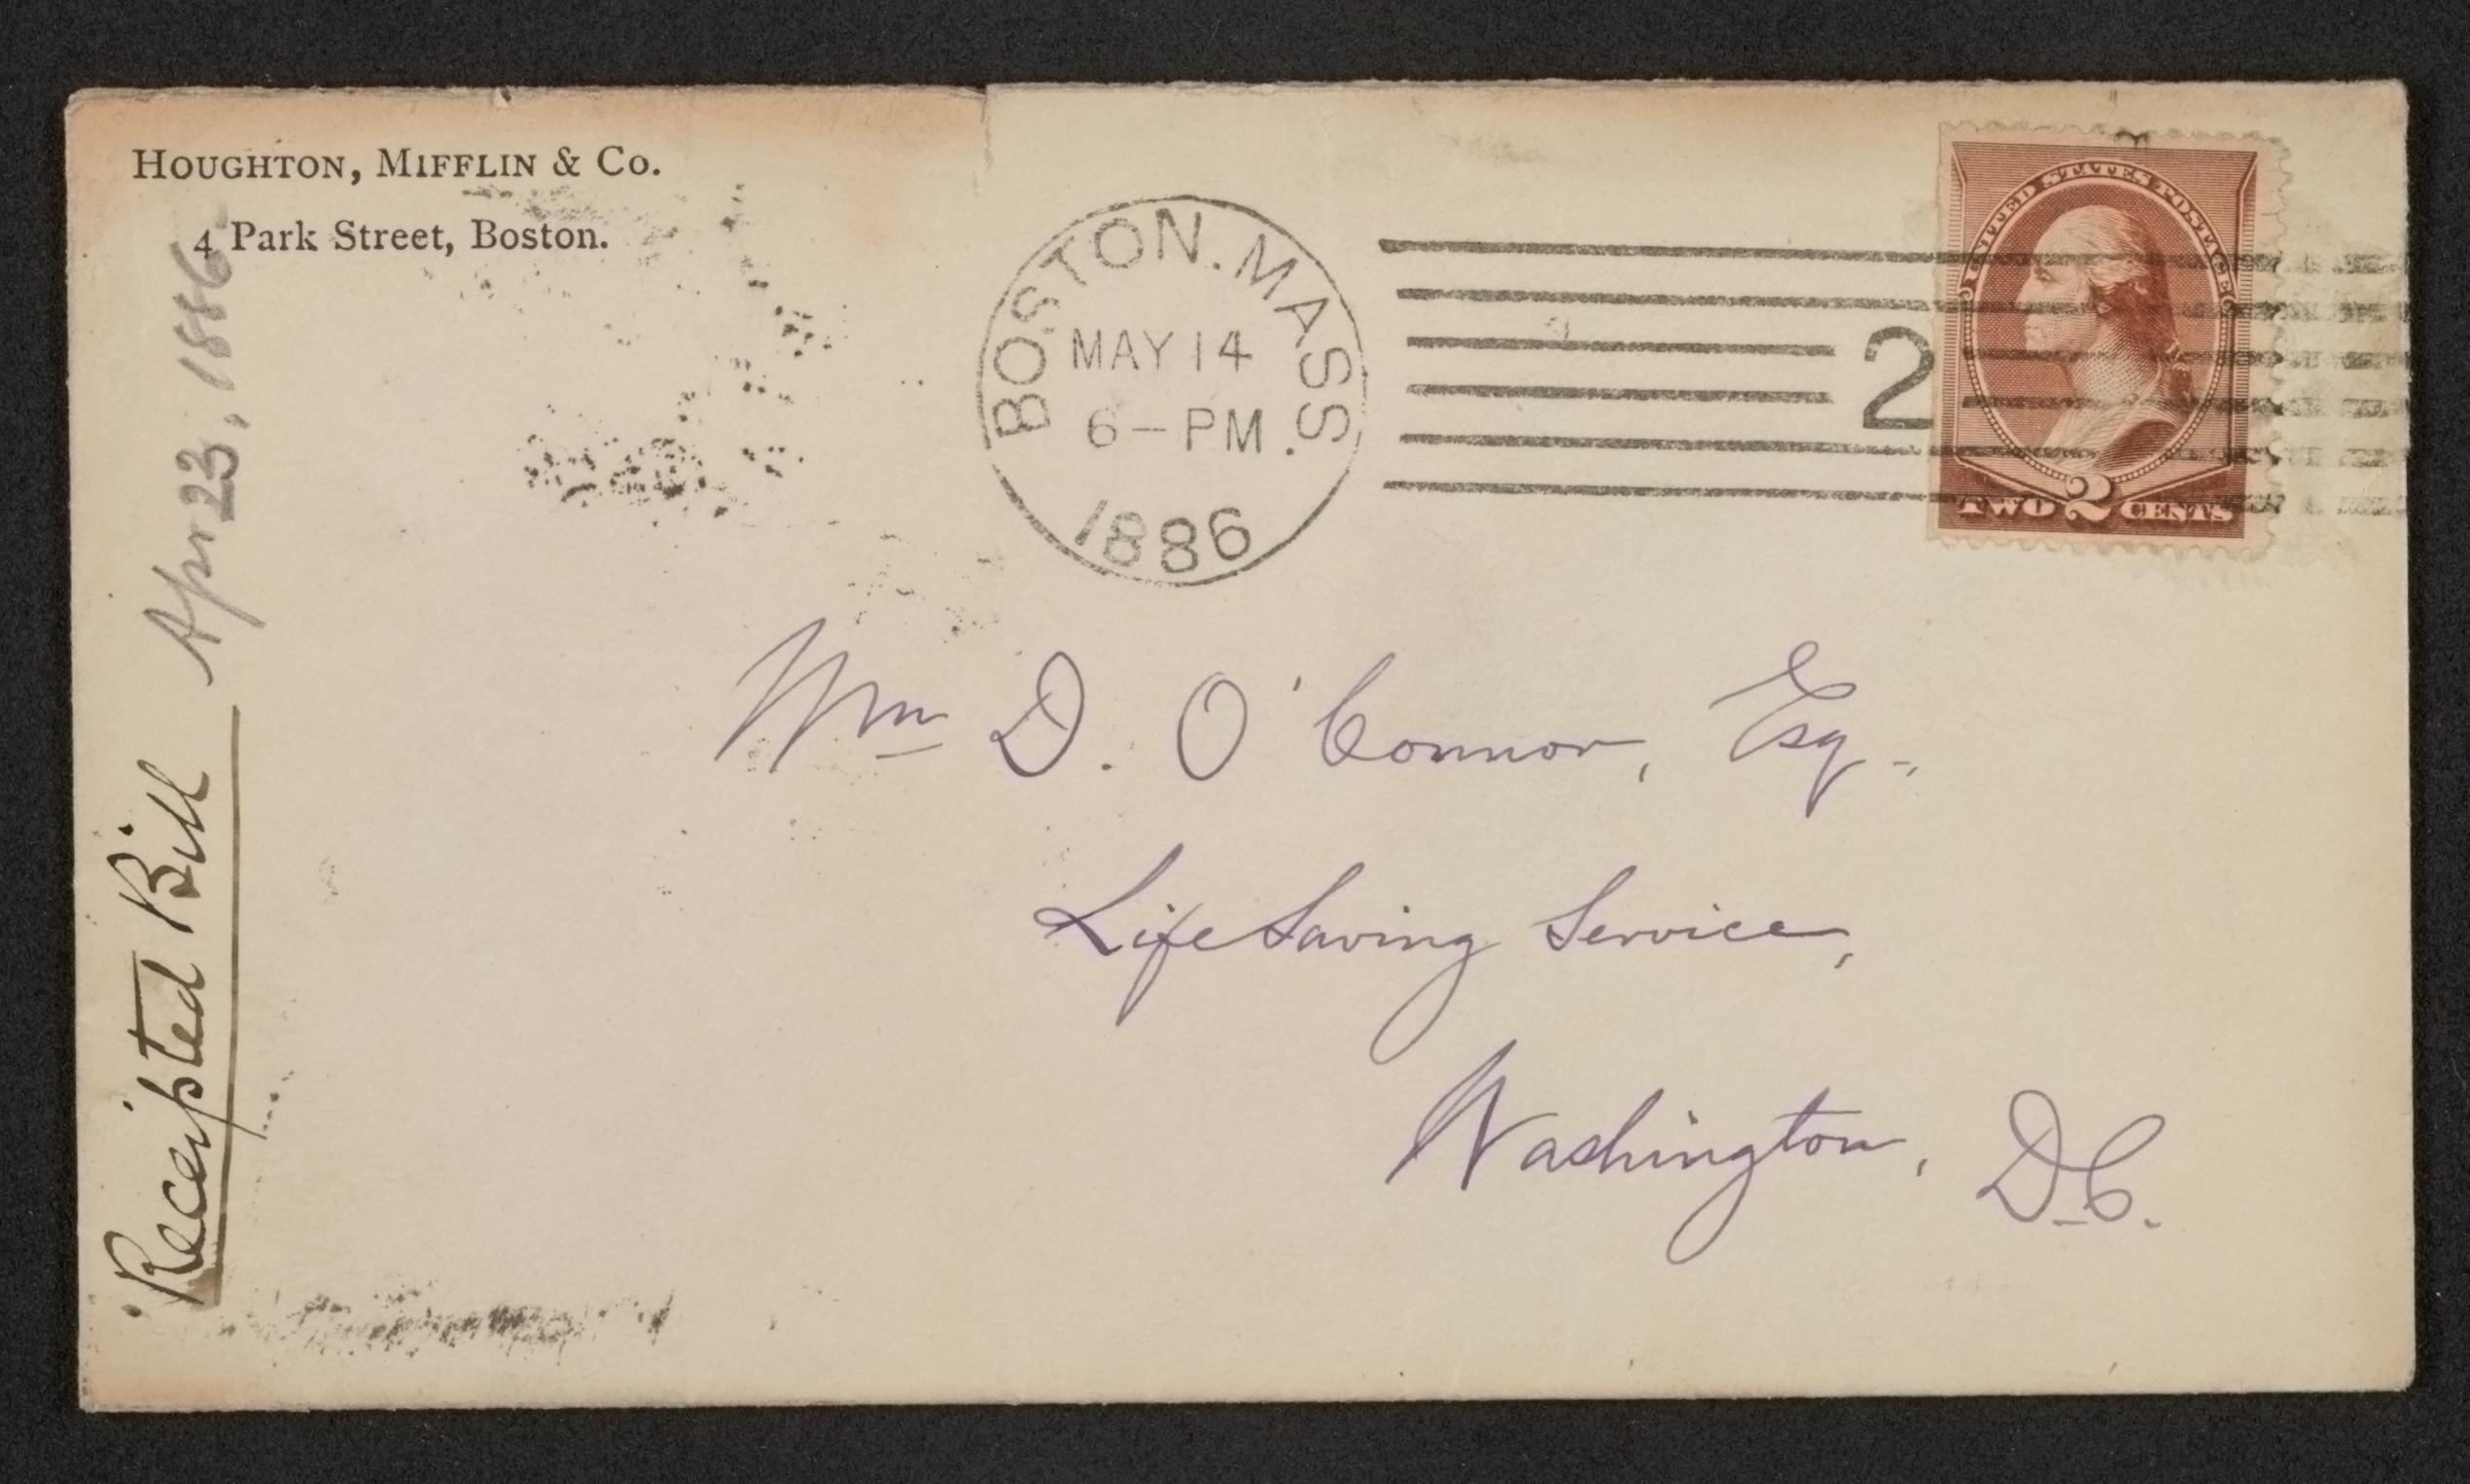 HOUGHTON, MIFFLIN & Co.
4 Park Street, Boston.
BOSTON. MASS.
MAY 14
6 - PM
1886
2
UNITED STATES POSTAGE
TWO 2 CENTS
Wm D. O'Connor, Esq.,
Life Saving Service,
Washington, D.C.
Receipted Bill Apr 23, 1886